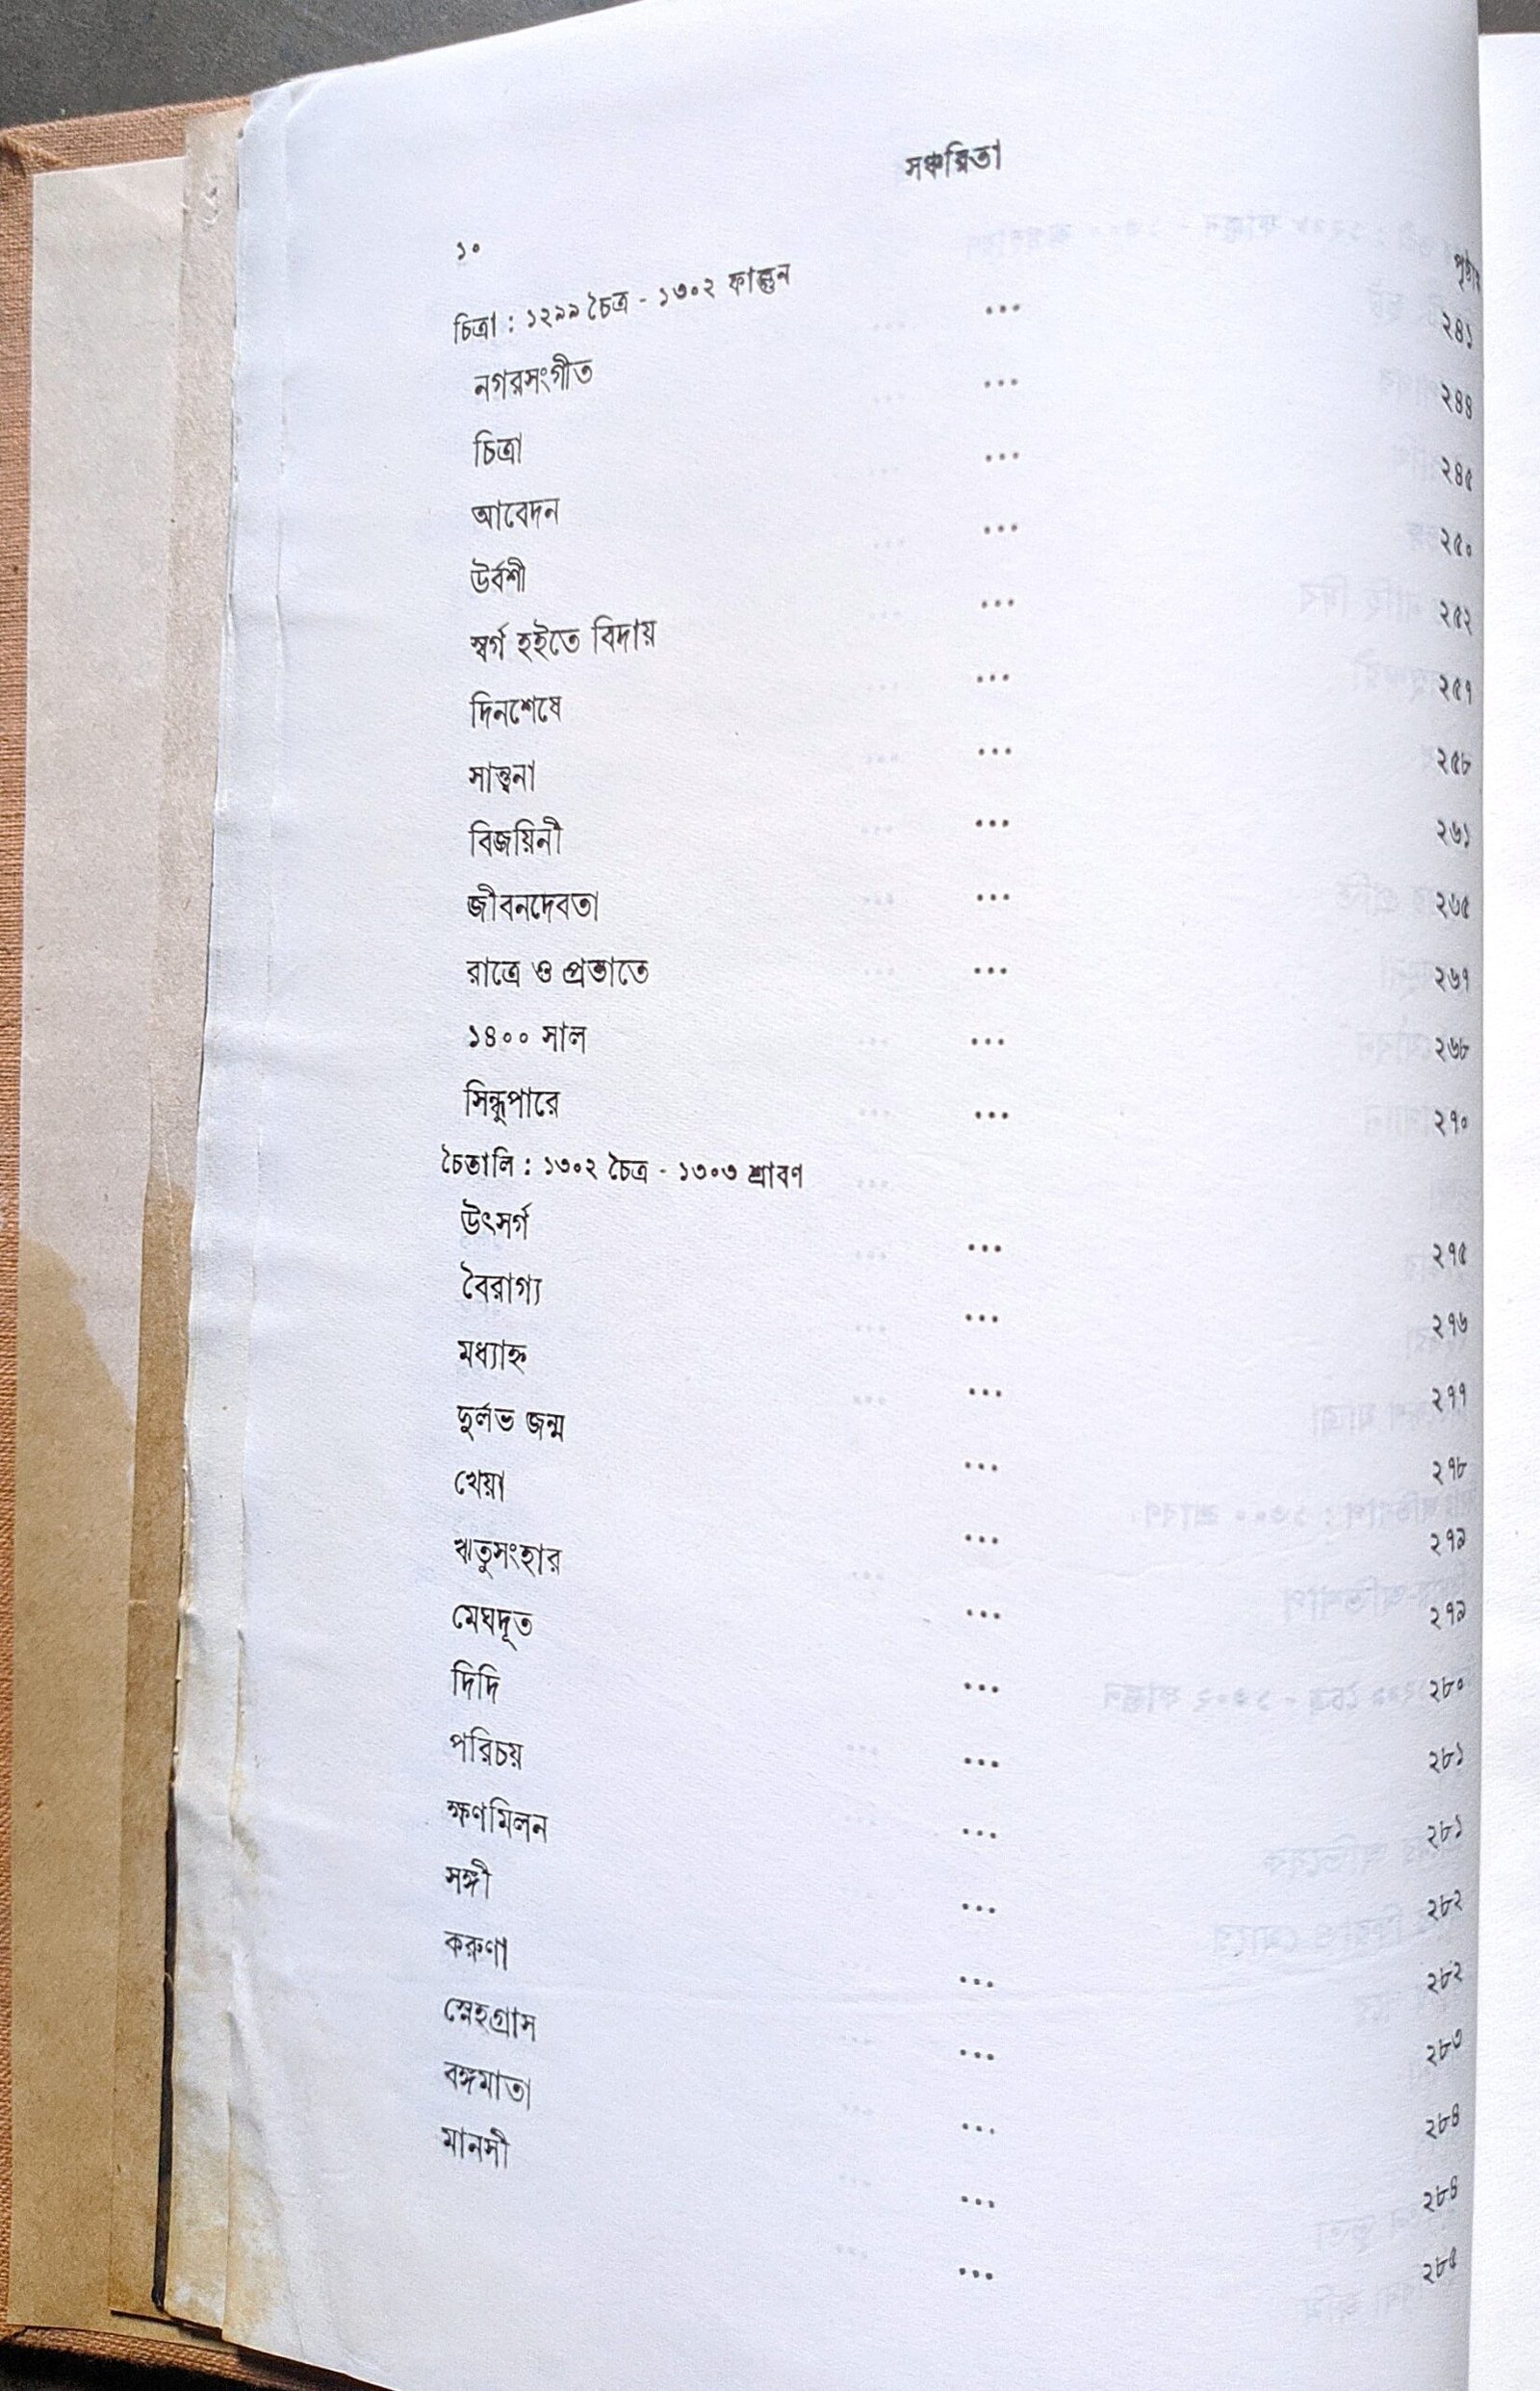 সঞ্চয়িতা
১০
চিত্রা : ১২৯৯ চৈত্র - ১৩০২ ফাল্গুন
নগরসংগীত ... ২৪১
চিত্রা ... ২৪৪
আবেদন ... ২৪৫
উর্বশী ... ২৫০
স্বর্গ হইতে বিদায় ... ২৫২
দিনশেষে ... ২৫৭
সান্ত্বনা ... ২৫৮
বিজয়িনী ... ২৬১
জীবনদেবতা ... ২৬৫
রাত্রে ও প্রভাতে ... ২৬৭
১৪০০ সাল ... ২৬৮
সিন্ধুপারে ... ২৭০
চৈতালি : ১৩০২ চৈত্র - ১৩০৩ শ্রাবণ
উৎসর্গ ... ২৭৫
বৈরাগ্য ... ২৭৬
মধ্যাহ্ন ... ২৭৭
দুর্লভ জন্ম ... ২৭৮
খেয়া ... ২৭৯
ঋতুসংহার ... ২৭৯
মেঘদূত ... ২৮০
দিদি ... ২৮১
পরিচয় ... ২৮১
ক্ষণমিলন ... ২৮২
সঙ্গী ... ২৮২
করুণা ... ২৮৩
স্নেহগ্রাস ... ২৮৪
বঙ্গমাতা ... ২৮৪
মানসী ... ২৮৫